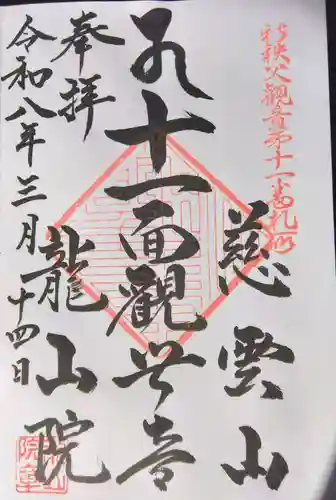 新秩父觀音第十一番札所
慈雲山
十一面觀世音
奉拝
龍山院
令和八年三月十四日